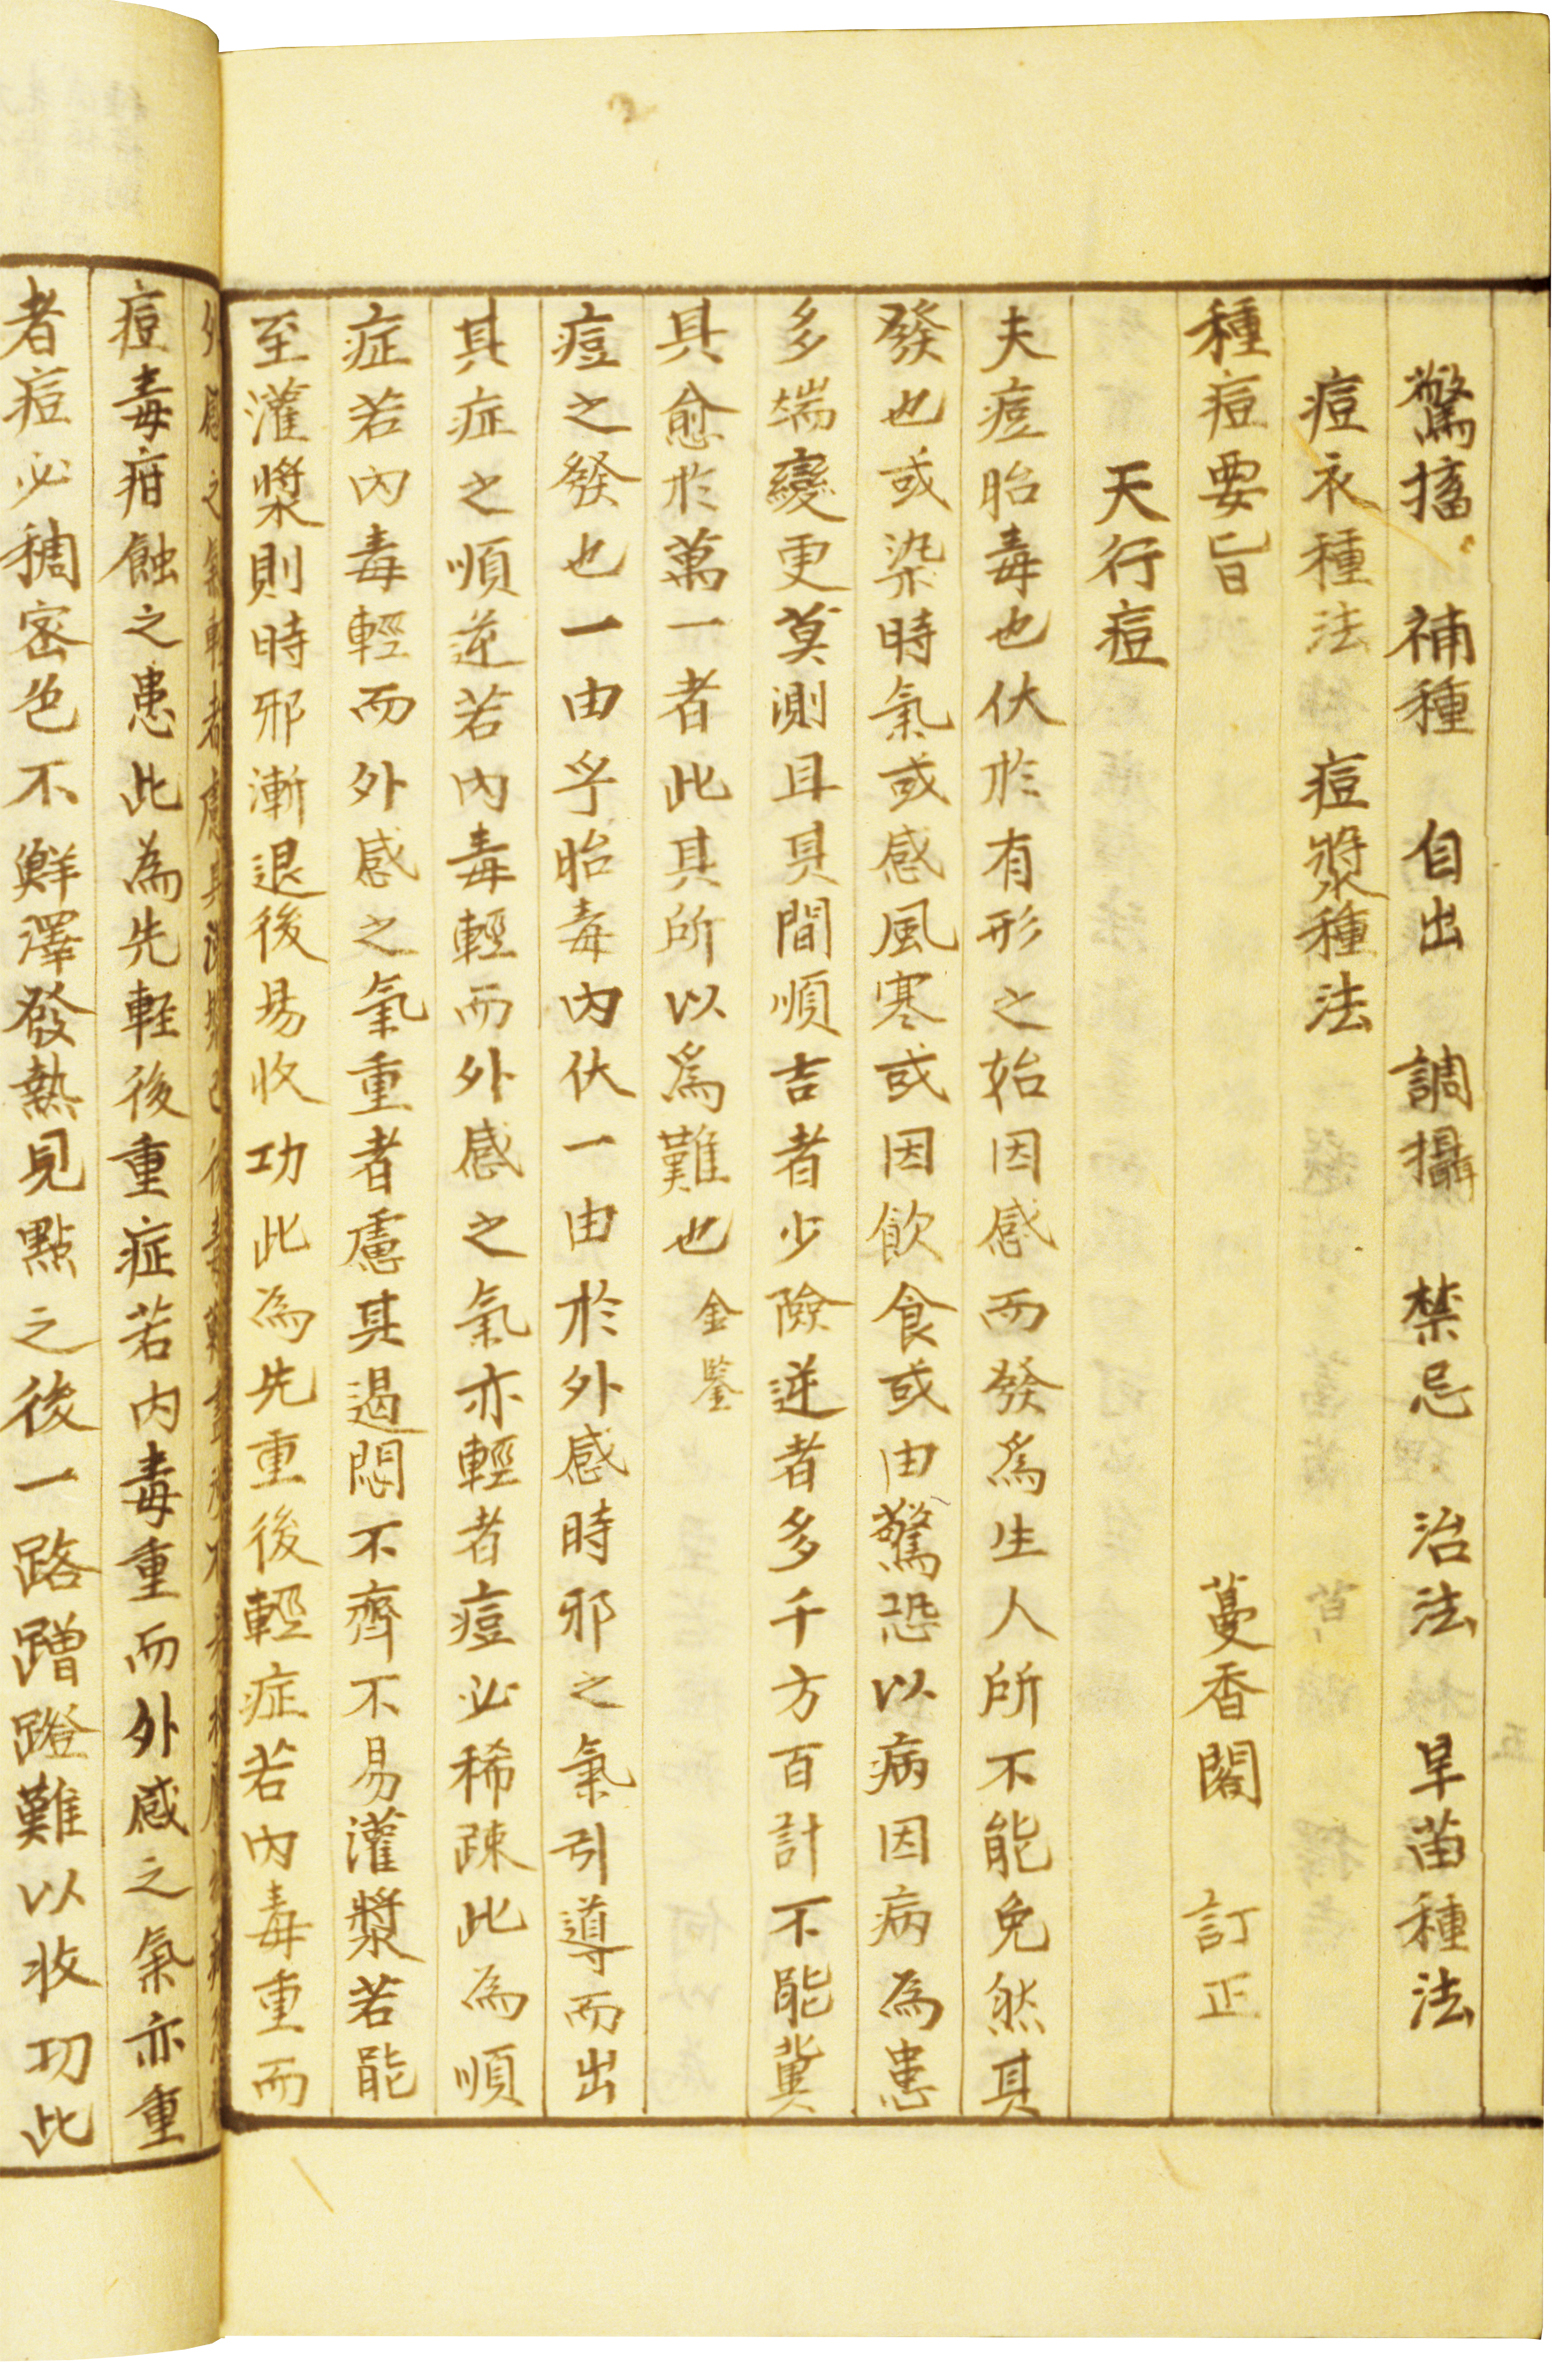 驚搐 補種 自出 調攝 禁忌 治法 早苗種法
痘衣種法 痘漿種法
種痘要旨 蔓香閣 訂正
天行痘
夫痘胎毒也伏於有形之始因感而發爲生人所不能免然其
發也或染時氣或感風寒或因飲食或由驚恐以病因病為患
多端變更莫測且其間順吉者少險逆者多千方百計不能冀
其愈於萬一者此其所以爲難也 金鑒
痘之發也一由乎胎毒內伏一由於外感時邪之氣引導而出
其症之順逆若內毒輕而外感之氣亦輕者痘必稀疎此為順
症若內毒輕而外感之氣重者慮其遏悶不齊不易灌漿若能
至灌漿則時邪漸退後易收功此為先重後輕症若內毒重而
痘毒疳蝕之患此為先輕後重症若內毒重而外感之氣亦重
者痘必稠密色不鮮澤發熱見點之後一路蹭蹬難以收功此